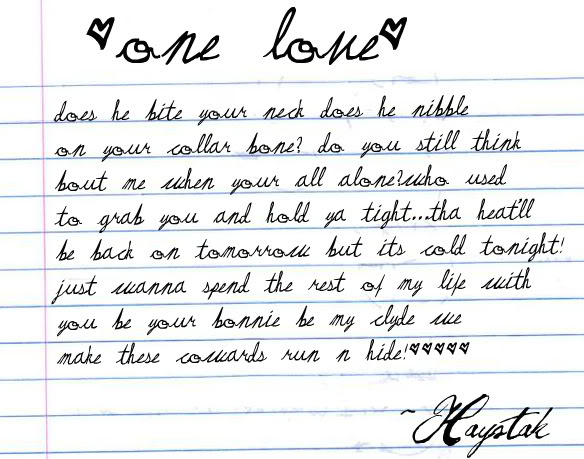 ♥one love♥
does he bite your neck does he nibble
on your collar bone? do you still think
bout me when your all alone?who used
to grab you and hold ya tight...tha heat'll
be back on tomorrow but its cold tonight!
just wanna spend the rest of my life with
you be your bonnie be my clyde we
make these cowards run n hide!♥♥♥♥♥
~Haystak